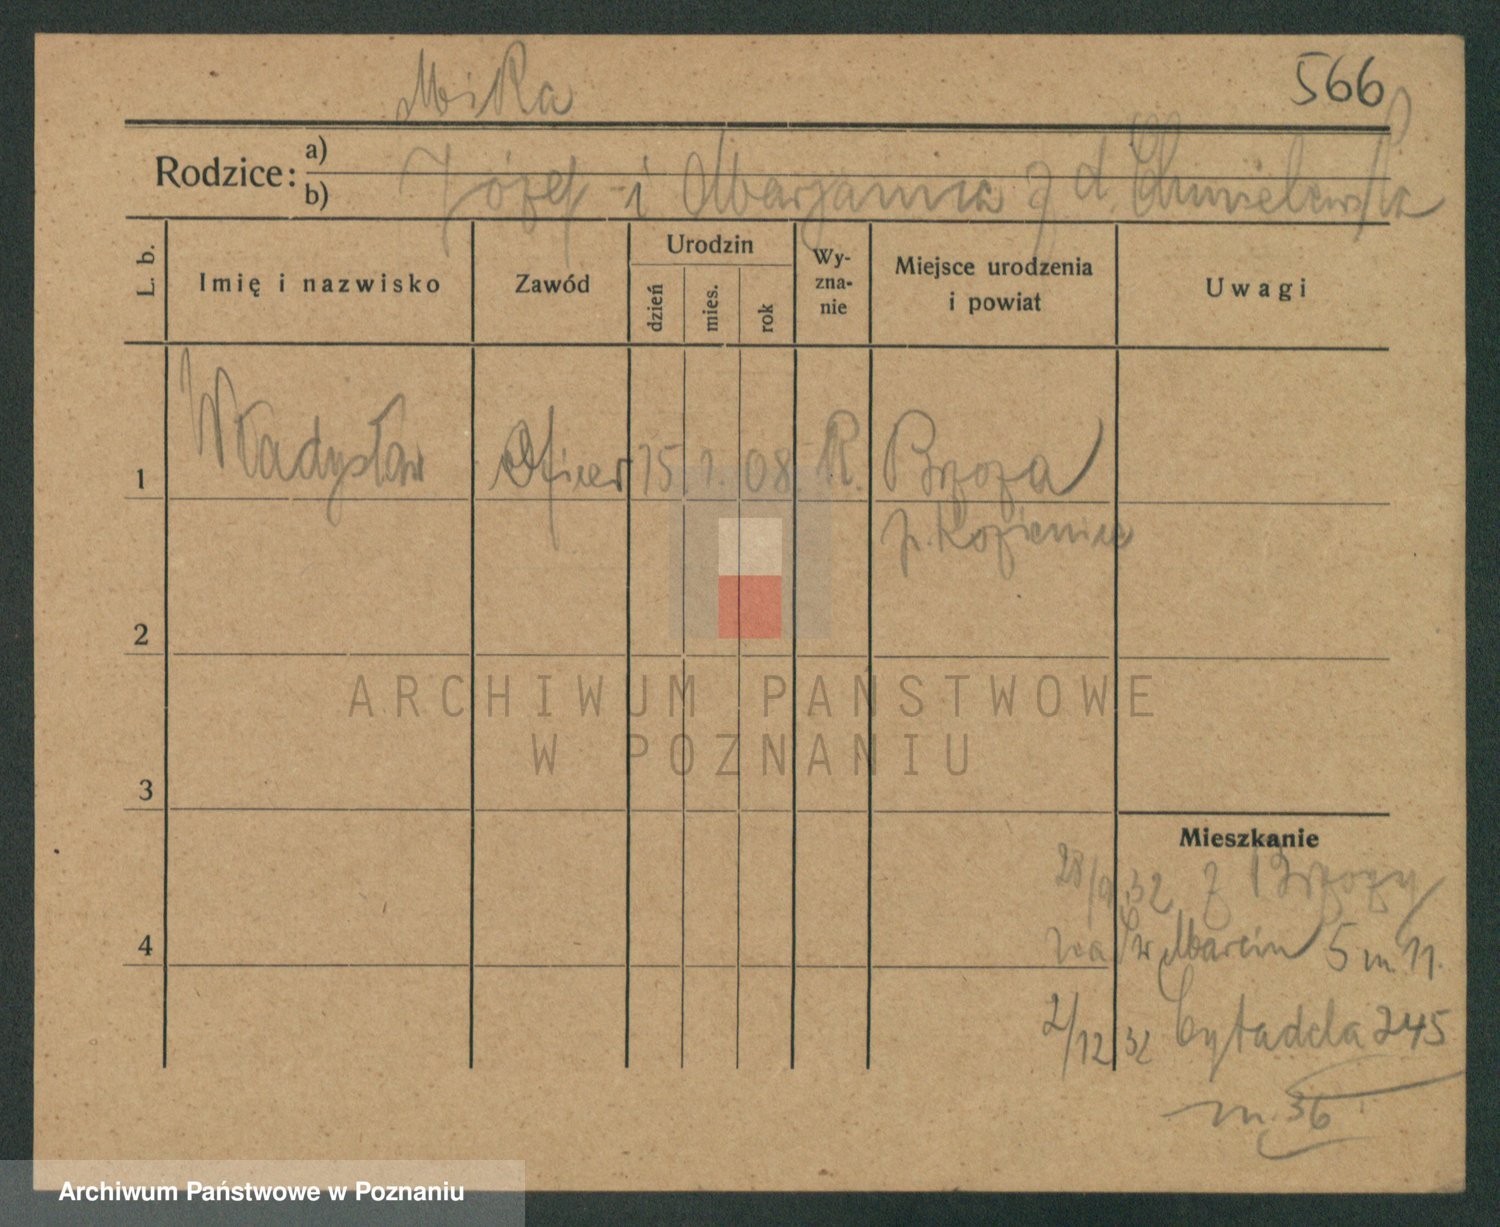 Mika
566
Rodzice: a)
b)
Józef i Marjanna z d. Chmielewska
L. b.
Imię i nazwisko
Zawód
Urodzin
dzień
mies.
rok
Wy-
zna-
nie
Miejsce urodzenia
i powiat
Uwagi
1
Władysław
Oficer
15. 1. 08. R.
Brzoza
p. Kozienice
2
ARCHIWUM PAŃSTWOWE
W POZNANIU
3
Mieszkanie
28/9 32 z Brzozy
4
na Św Marcin 5 m. 11.
2/12 32 Cytadela 245
m. 36
Archiwum Państwowe w Poznaniu